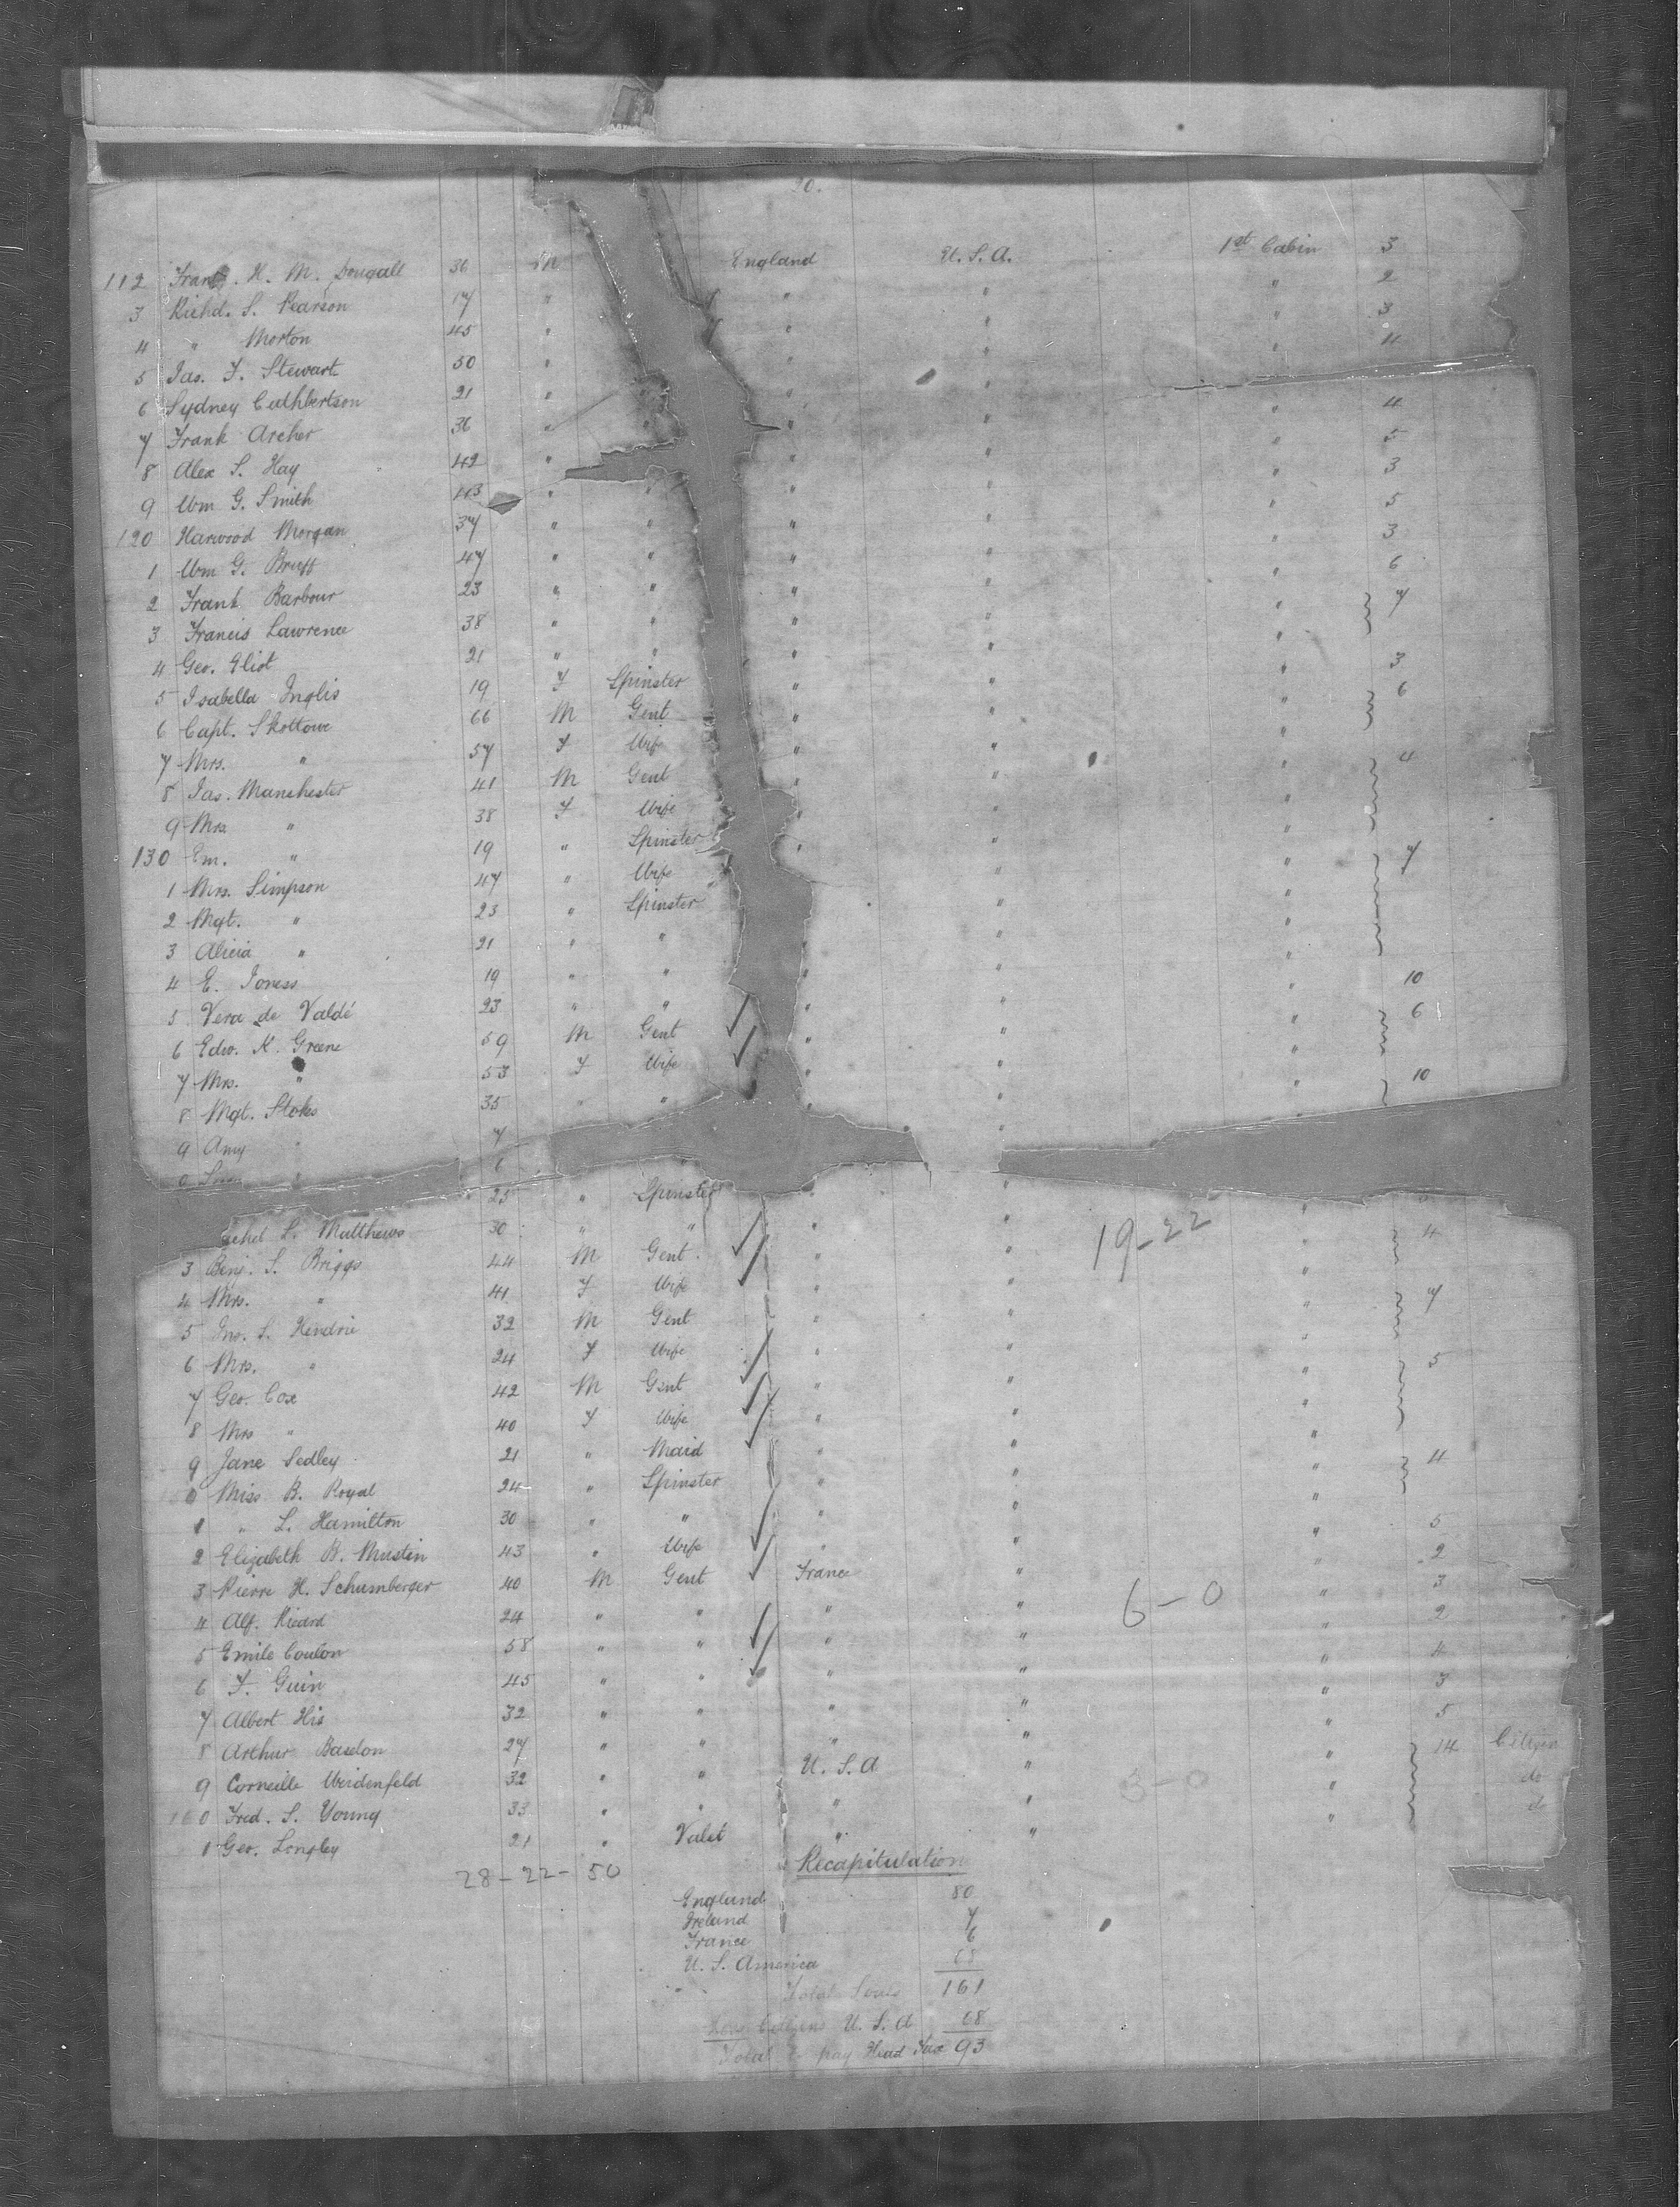 20.
112 Frank. H. M. Dougall 36 M England U.S.A. 1st Cabin 3
3 Richd. S. Pearson 17 " " " " 2
4 " Morton 45 " " " " 3
5 Jas. F. Stewart 50 " " " " 4
6 Sydney Cuthbertson 21 " " " "
7 Frank Archer 36 " " " " " 4
8 Alex S. Hay 42 " " " " 5
9 Wm G. Smith 43 " " " " " 3
120 Harwood Morgan 37 " " " " " 5
1 Wm G. Bruff 47 " " " " " 3
2 Frank Barbour 23 " " " " " 6
3 Francis Lawrence 38 " " " " " 7
4 Geo. Eliot 21 " " " " "
5 Isabella Inglis 19 F Spinster " " " 3
6 Capt. Skottowe 66 M Gent " " " 6
7 Mrs. " 57 F Wife " " "
8 Jas. Manchester 41 M Gent " " " 4
9 Mrs " 38 F Wife " " "
130 Em. " 19 " Spinster " " "
1 Mrs. Simpson 47 " Wife " " 7
2 Mgt. " 23 " Spinster " "
3 Alicia " 21 " " " " "
4 E. Joness 19 " " " " " 10
5 Vera de Valdé 23 " " " " " 6
6 Edw. K. Greene 59 M Gent " " "
7 Mrs. " 53 F Wife " " " 10
8 Mgt. Stokes 35 " " " " "
9 Amy " 7
6
25 " Spinster " "
L. Matthews 30 " " " " " 4
3 Benj. S. Briggs 44 M Gent " " "
4 Mrs. " 41 F Wife " " " 7
5 Jno. S. Hendrie 32 M Gent " " "
6 Mrs. " 24 F Wife " " " 5
7 Geo. Cox 42 M Gent " " "
8 Mrs " 40 F Wife " " "
9 Jane Sedley 21 " Maid " " " 4
0 Miss B. Royal 24 " Spinster " " "
1 " L. Hamilton 30 " " " " " 5
2 Elizabeth B. Mustin 43 " Wife " " " 2
3 Pierre H. Schumberger 40 M Gent France " " 3
4 Alf. Picard 24 " " " " " 2
5 Emile Coulon 58 " " " " " 4
6 F. Guin 45 " " " " " 3
7 Albert His 32 " " " " " 5
8 Arthur Basdon 27 " " " " " 14 Citizen
9 Corneille Weidenfeld 32 " " U.S.A " " do
160 Fred. S. Young 33 " " " " " do
1 Geo. Longley 21 " Valet " "
19-22
6-0
3-0
28-22-50
Recapitulation
England 80
Ireland 7
France 6
U.S. America 68
Total Souls 161
Less Citizens U.S.A 68
Total to pay Head Tax 93